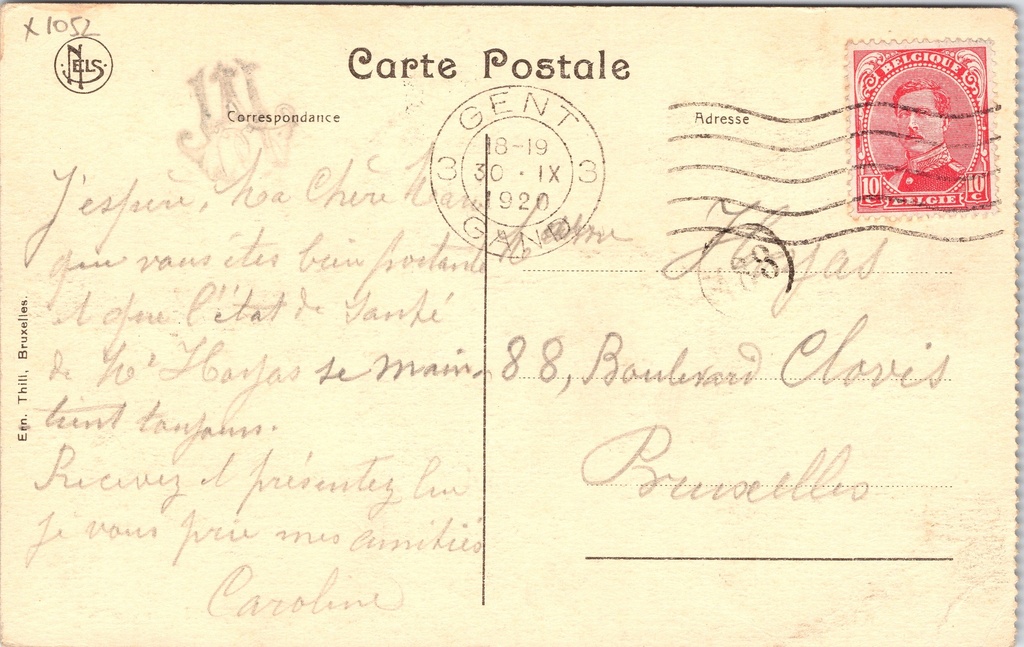 x 1052
NELS
Carte Postale
Correspondance
Adresse
GENT
18-19
3 30 · IX 3
1920
GAND
BELGIQUE
10 10
C C
BELGIË
J'espère, Ma Chère
que vous êtes bien portante
et que l'état de santé
de Mr Hoyas se main-
tient toujours.
Recevez et présentez lui
je vous prie mes amitiés
Caroline
Madame Hoyas
88, Boulevard Clovis
Bruxelles
Ern. Thill, Bruxelles.